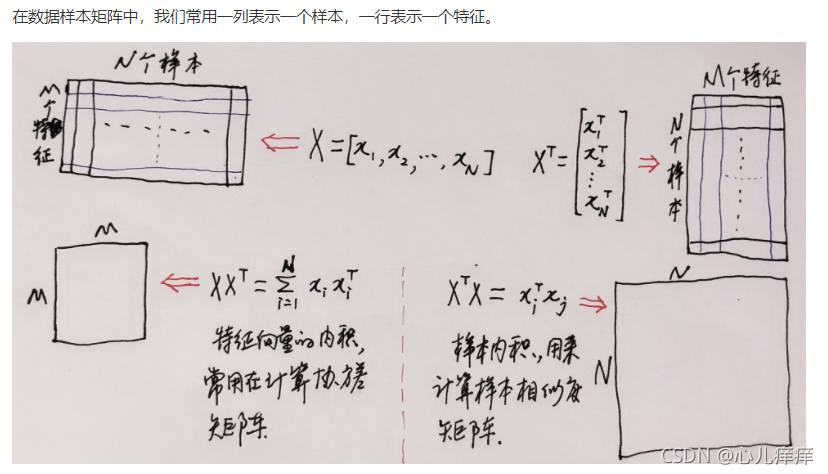 在数据样本矩阵中，我们常用一列表示一个样本，一行表示一个特征。
N个样本
M个特征
X=[x₁,x₂,…,x_N]
Xᵀ=[x₁ᵀ x₂ᵀ ⋮ x_Nᵀ]
M个特征
N个样本
M
M
XXᵀ=∑_{i=1}^{N} xᵢxᵢᵀ
特征向量的内积,
常用在计算协方差
矩阵.
XᵀX=xᵢᵀxⱼ
样本内积,用来
计算样本相似度
矩阵.
N
N
CSDN @心儿痒痒